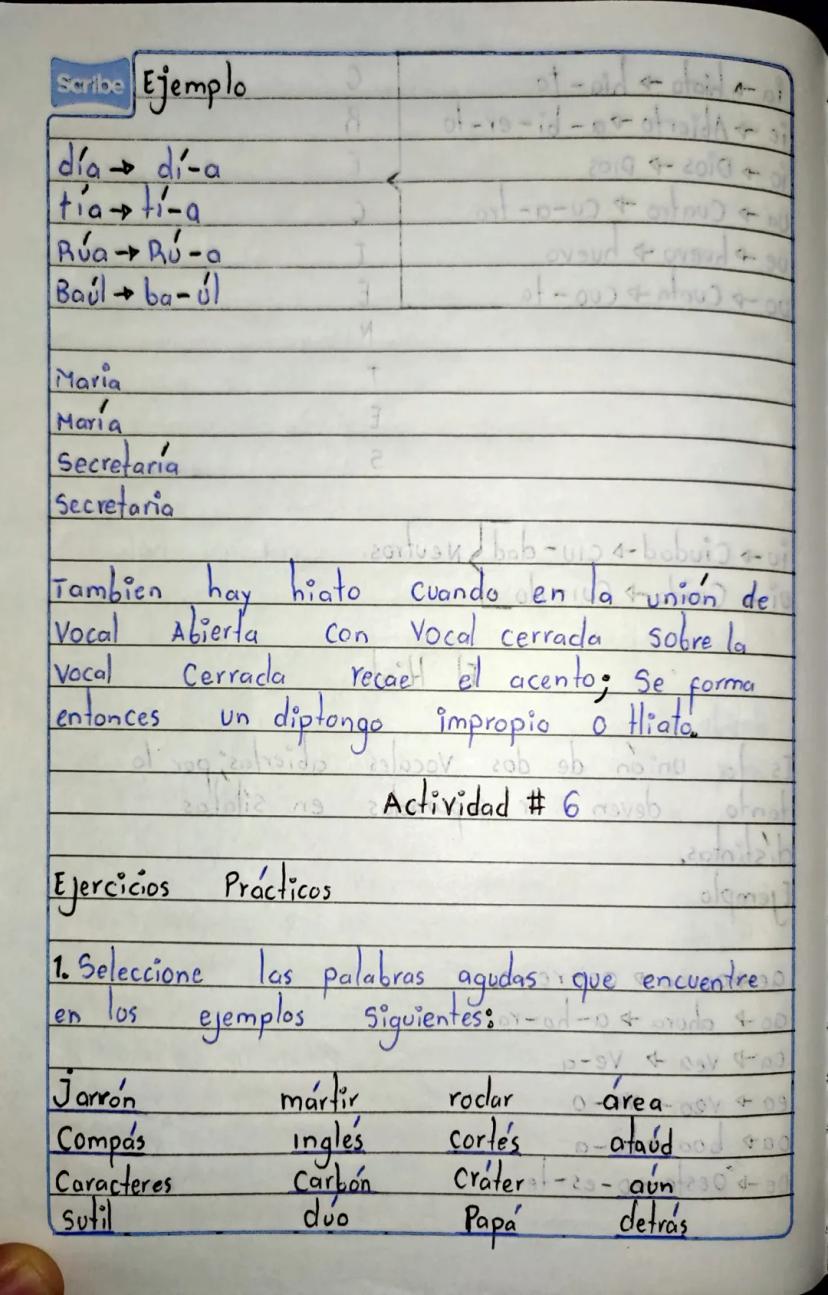 Scribe Ejemplo
día → dí-a
tía → tí-a
Rúa → Rú-a
Baúl → ba-úl
Maria
María
Secretaría
Secretaria
Tambien hay hiato cuando en la unión de
Vocal Abierta con Vocal cerrada sobre la
Vocal Cerrada recae el acento; Se forma
entonces un diptongo impropio o Hiato.
Actividad # 6
Ejercicios Prácticos
1. Seleccione las palabras agudas que encuentre
en los ejemplos Siguientes:
Jarrón mártir rodar área
Compás inglés cortés ataúd
Caracteres Carbón Cráter aún
Sutil dúo Papá detrás